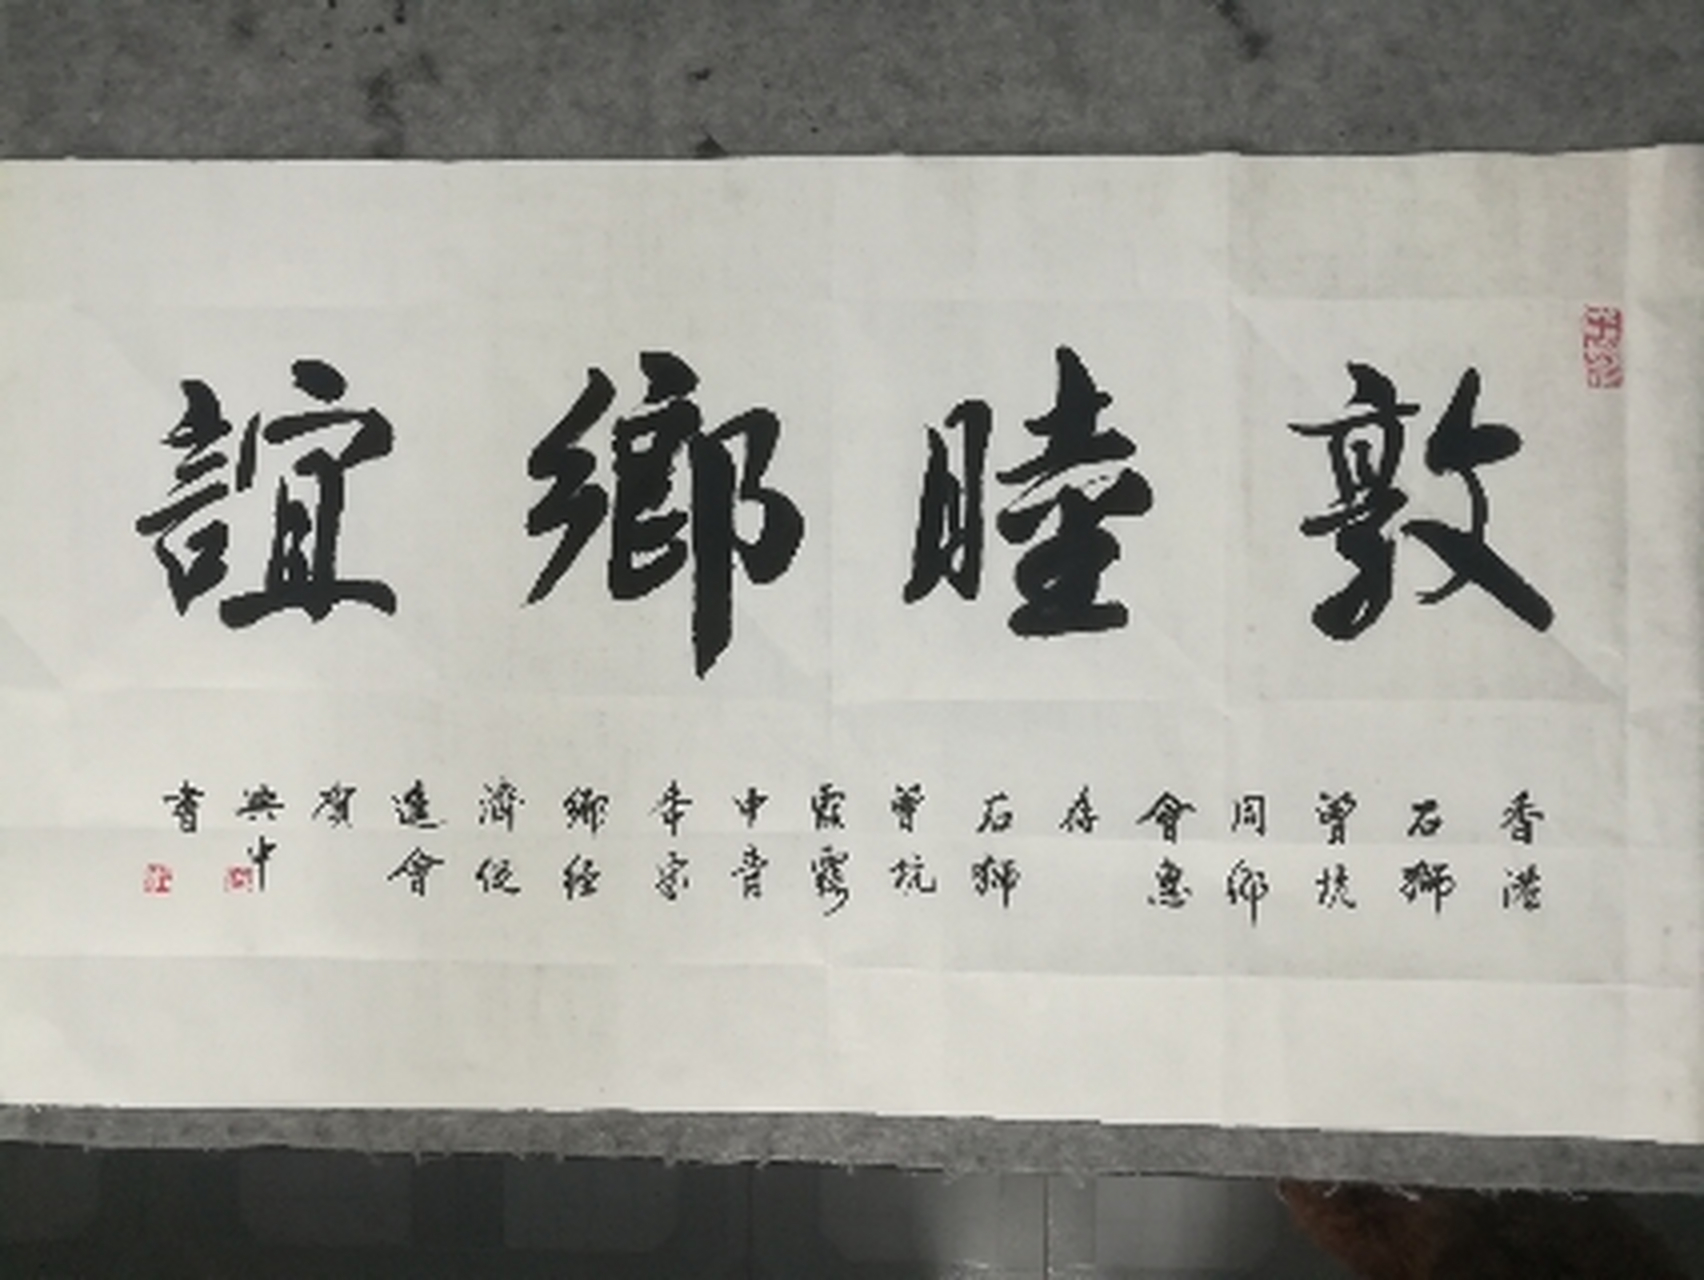 敦睦鄉誼
香港
石獅
曾坑
同鄉
會惠
存
石獅
曾坑
霞霧
中音
李宗
鄉經
濟促
進會
賀
興中
書